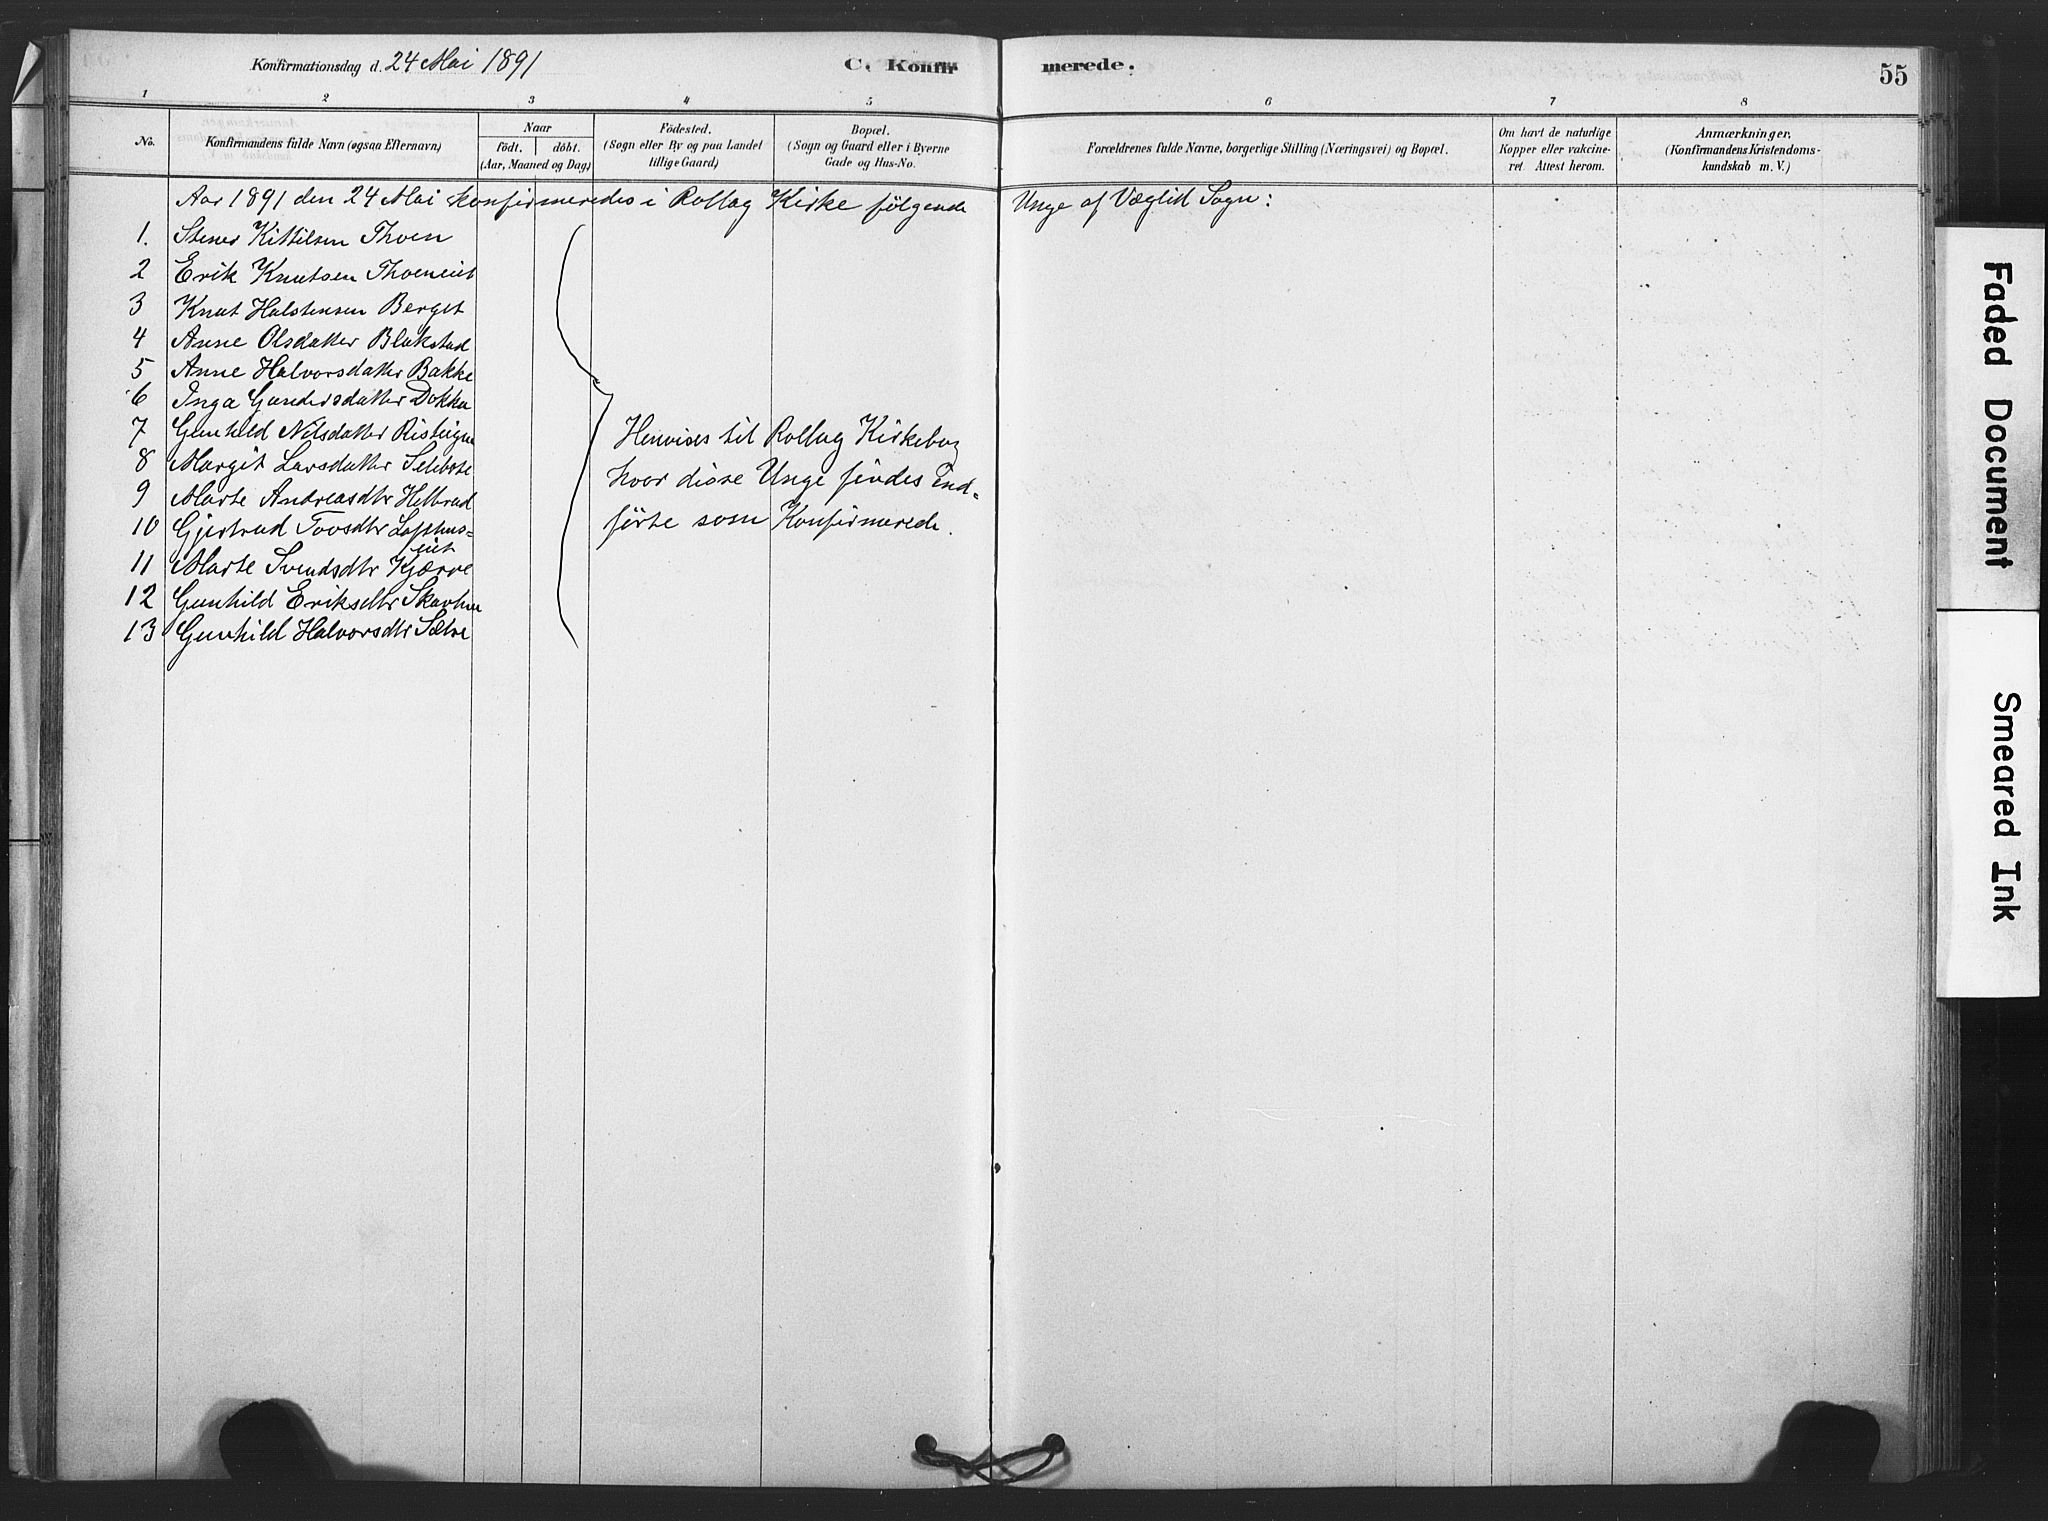 Konfirmationsdag d. 24 Mai 1891
C. Konfirmerede.
55
1 2 3 4 5 6 7 8
No.
Konfirmandens fulde Navn (ogsaa Efternavn)
Naar
födt. döbt.
(Aar, Maaned og Dag)
Födested.
(Sogn eller By og paa Landet
tillige Gaard)
Bopæl.
(Sogn og Gaard eller i Byerne
Gade og Hus-No.
Forældrenes fulde Navne, borgerlige Stilling (Næringsvei) og Bopæl.
Om havt de naturlige
Kopper eller vakcine-
ret. Attest herom.
Anmærkninger.
(Konfirmandens Kristendoms-
kundskab m. V.)
Aar 1891 den 24 Mai konfirmeredes i Rollag Kirke følgende Unge af Væglid Sogn:
1. Stener Kittilsen Thoen
2 Erik Knutsen Thoeneiet
3 Knut Halstensen Berget
4 Anne Olsdatter Blakstad
5 Anne Halvorsdatter Bakke
6 Inga Gundersdatter Dokka
7 Gunhild Nilsdatter
8 Margit Larsdatter
9 Marte Andreasdtr
10 Gjertrud Tovsdtr Lofthus-
eiet
11 Marte Svendsdtr Kjærre
12 Gunhild Eriksdtr
13 Gunhild Halvorsdtr Sætre
Henvises til Rollag Kirkebog
hvor disse Unge findes ind-
førte som Konfirmerede.
Faded Document
Smeared Ink